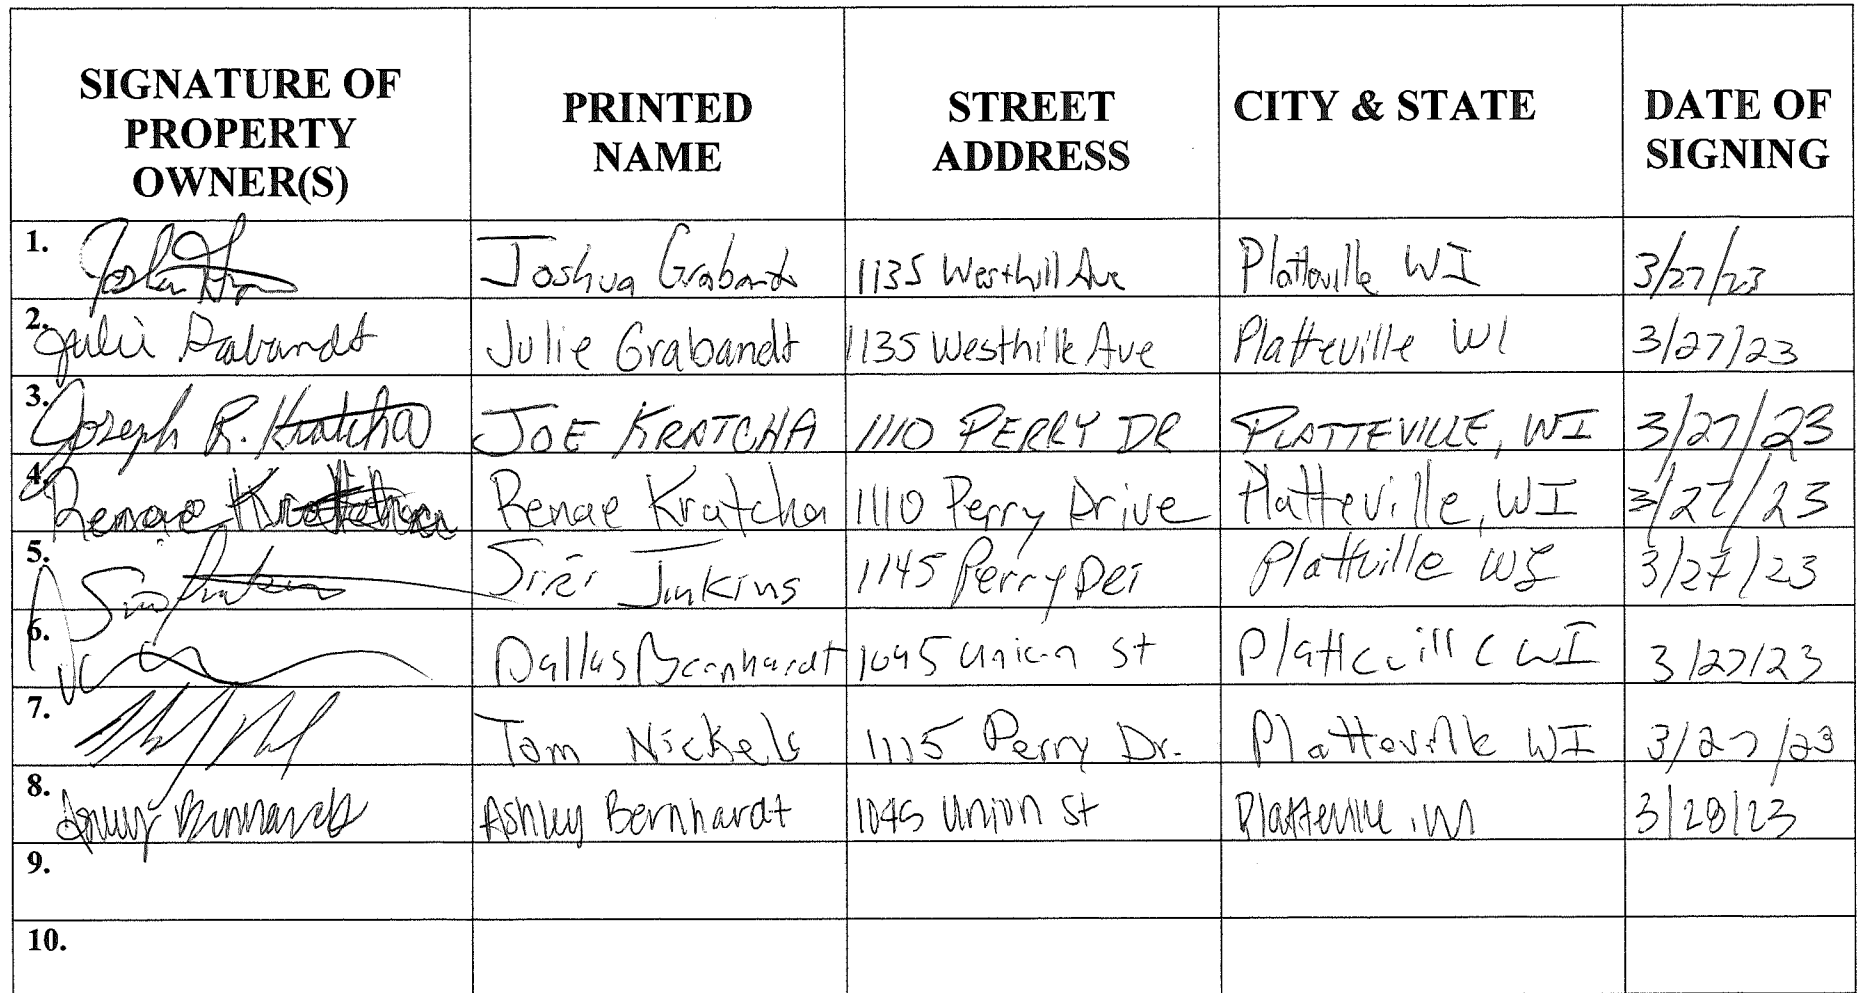 SIGNATURE OF PROPERTY OWNER(S) PRINTED NAME STREET ADDRESS CITY & STATE DATE OF SIGNING
1. Joshua Grabandt 1135 Westhill Ave Platteville WI 3/27/23
2. Julie Grabandt Julie Grabandt 1135 Westhill Ave Platteville WI 3/27/23
3. Joseph R. Kratcha JOE KRATCHA 1110 PERRY DR PLATTEVILLE, WI 3/27/23
4. Renae Kratcha Renae Kratcha 1110 Perry Drive Platteville, WI 3/27/23
5. Jinkins 1145 Perry Platteville WI 3/27/23
6. Dallas Bernhardt 1045 Union St Platteville WI 3/27/23
7. Tom Nickels 1115 Perry Dr. Platteville WI 3/27/23
8. Ashley Bernhardt Ashley Bernhardt 1045 Union St Platteville, WI 3/28/23
9.
10.